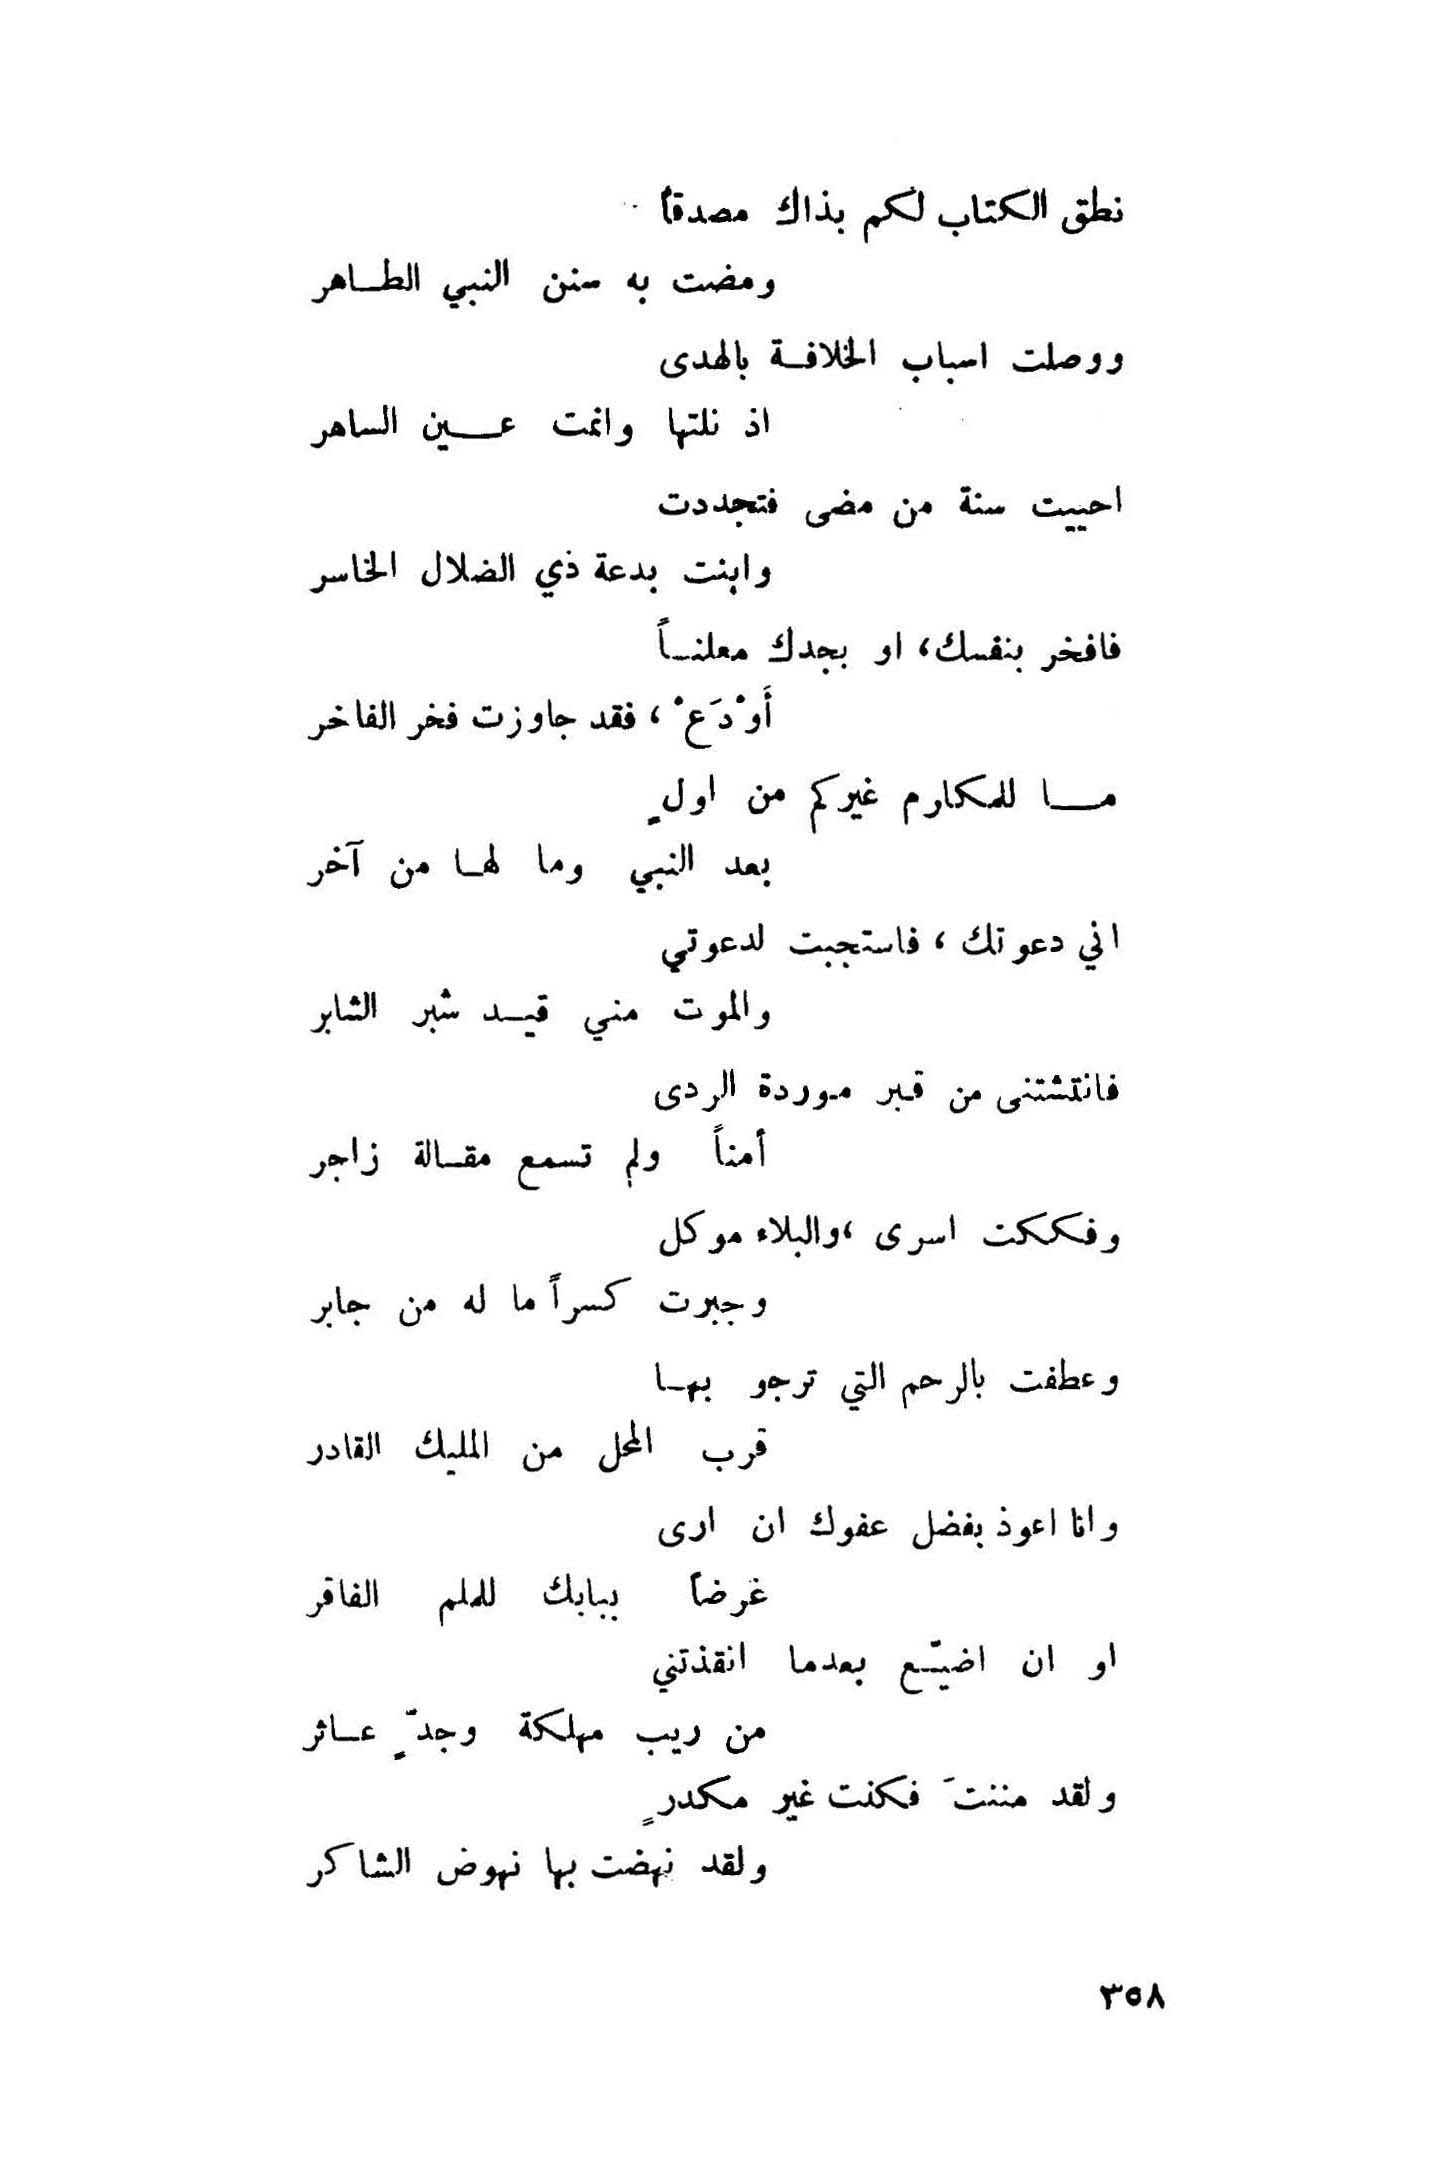 نطق الكتاب لكم بذاك مصدقاً
ومضت به سنن النبي الطاهر
ووصلت اسباب الخلافة بالهدى
اذ نلتها وانمت عين الساهر
احييت سنة من مضى فتجددت
وابنت بدعة ذي الضلال الخاسر
فافخر بنفسك، او بجدك معلناً
أَوْدَعْ، فقد جاوزت فخر الفاخر
ما للمكارم غيركم من اولٍ
بعد النبي وما لها من آخر
اني دعوتك، فاستجبت لدعوتي
والموت مني قيد شبر الشابر
فانتشتنى من قبر موردة الردى
أمناً ولم تسمع مقالة زاجر
وفككت اسرى، والبلاء موكل
وجبرت كسراً ما له من جابر
وعطفت بالرحم التي ترجو بها
قرب المحل من المليك القادر
وانا اعوذ بفضل عفوك ان ارى
غرضاً ببابك للملم الفاقر
او ان اضيّع بعدما انقذتني
من ريب مهلكة وجدٍّ عاثر
ولقد مننتَ فكنت غير مكدرٍ
ولقد نهضت بها نهوض الشاكر
٣٥٨